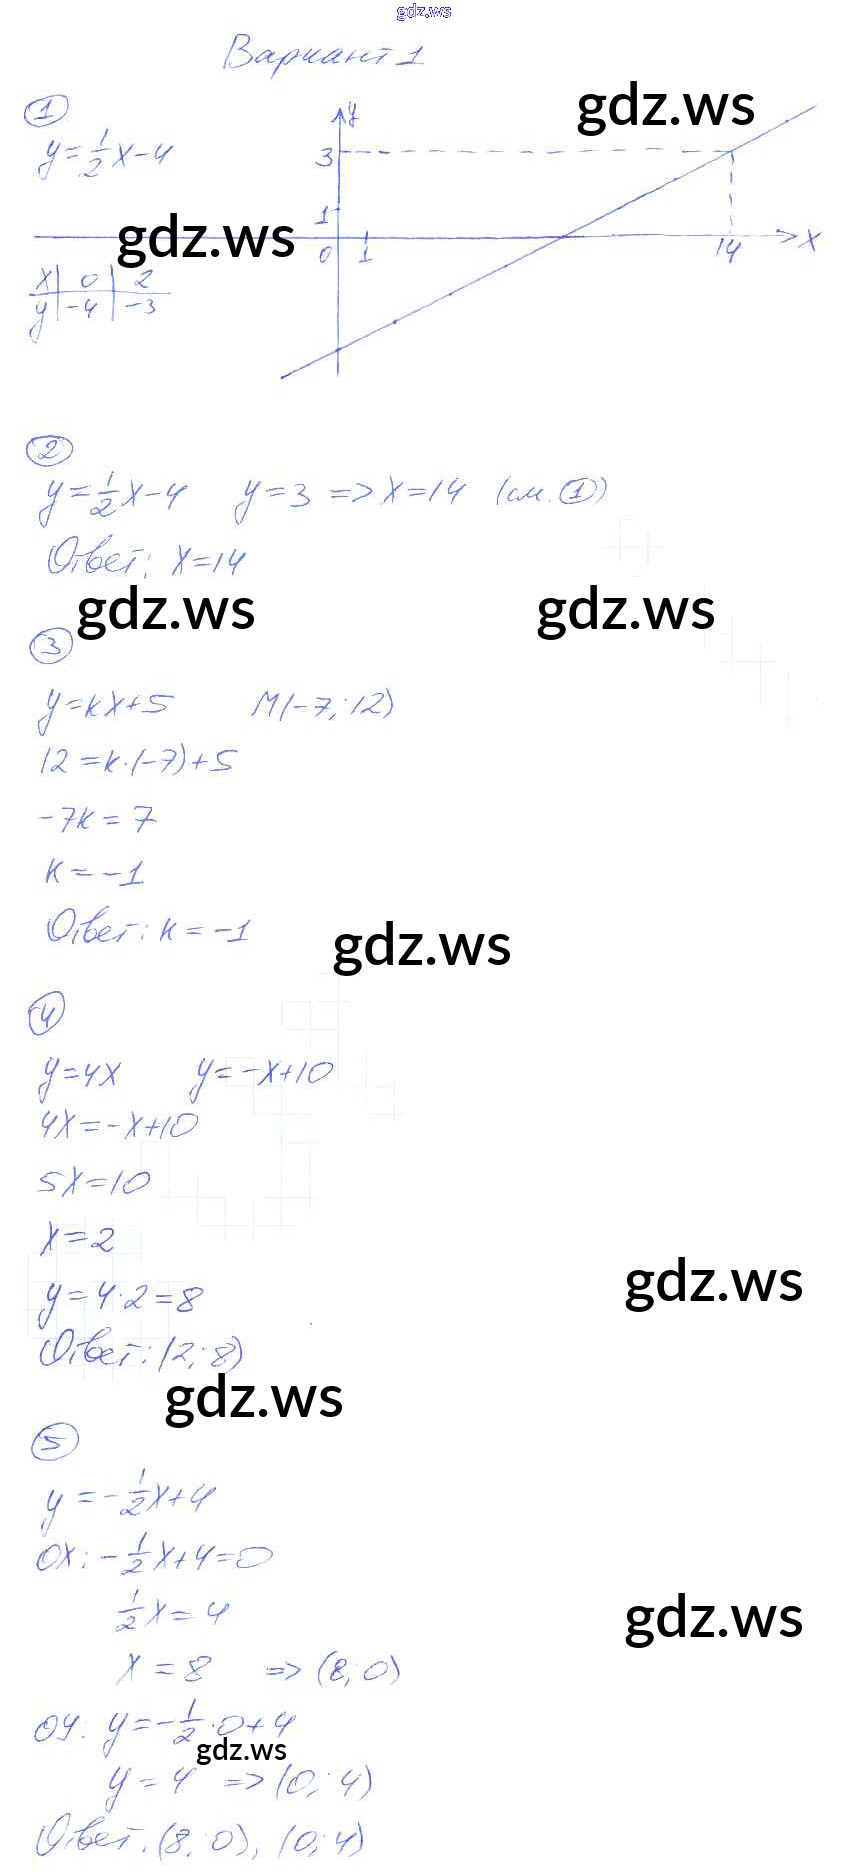 gdz.ws
Вариант 1
1
y=1/2x-4
y
3
1
0
1
14
x
gdz.ws
gdz.ws
x | 0 | 2
y | -4 | -3
2
y=1/2x-4 y=3 => x=14 (см. 1)
Ответ: x=14
gdz.ws gdz.ws
3
y=kx+5 M(-7; 12)
12=k·(-7)+5
-7k=7
k=-1
Ответ: k=-1
gdz.ws
4
y=4x y=-x+10
4x=-x+10
5x=10
x=2
gdz.ws
y=4·2=8
Ответ: (2; 8)
gdz.ws
5
y=-1/2x+4
OX: -1/2x+4=0
1/2x=4
gdz.ws
x=8 => (8; 0)
OY: y=-1/2·0+4
gdz.ws
y=4 => (0; 4)
Ответ: (8; 0), (0; 4)